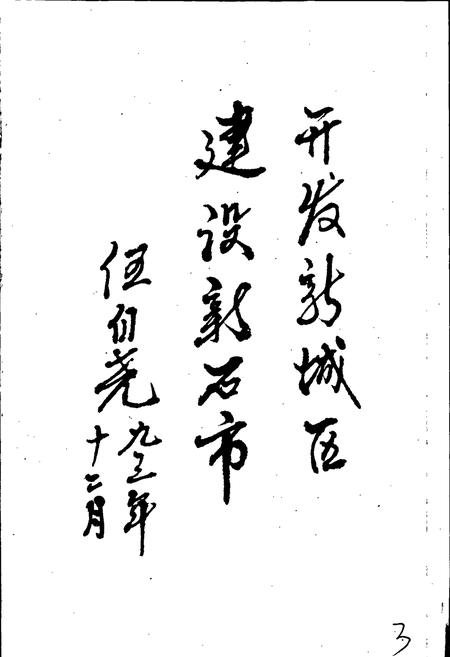 开发新城区
建设新石市
任伯尧
九三年
十二月
3